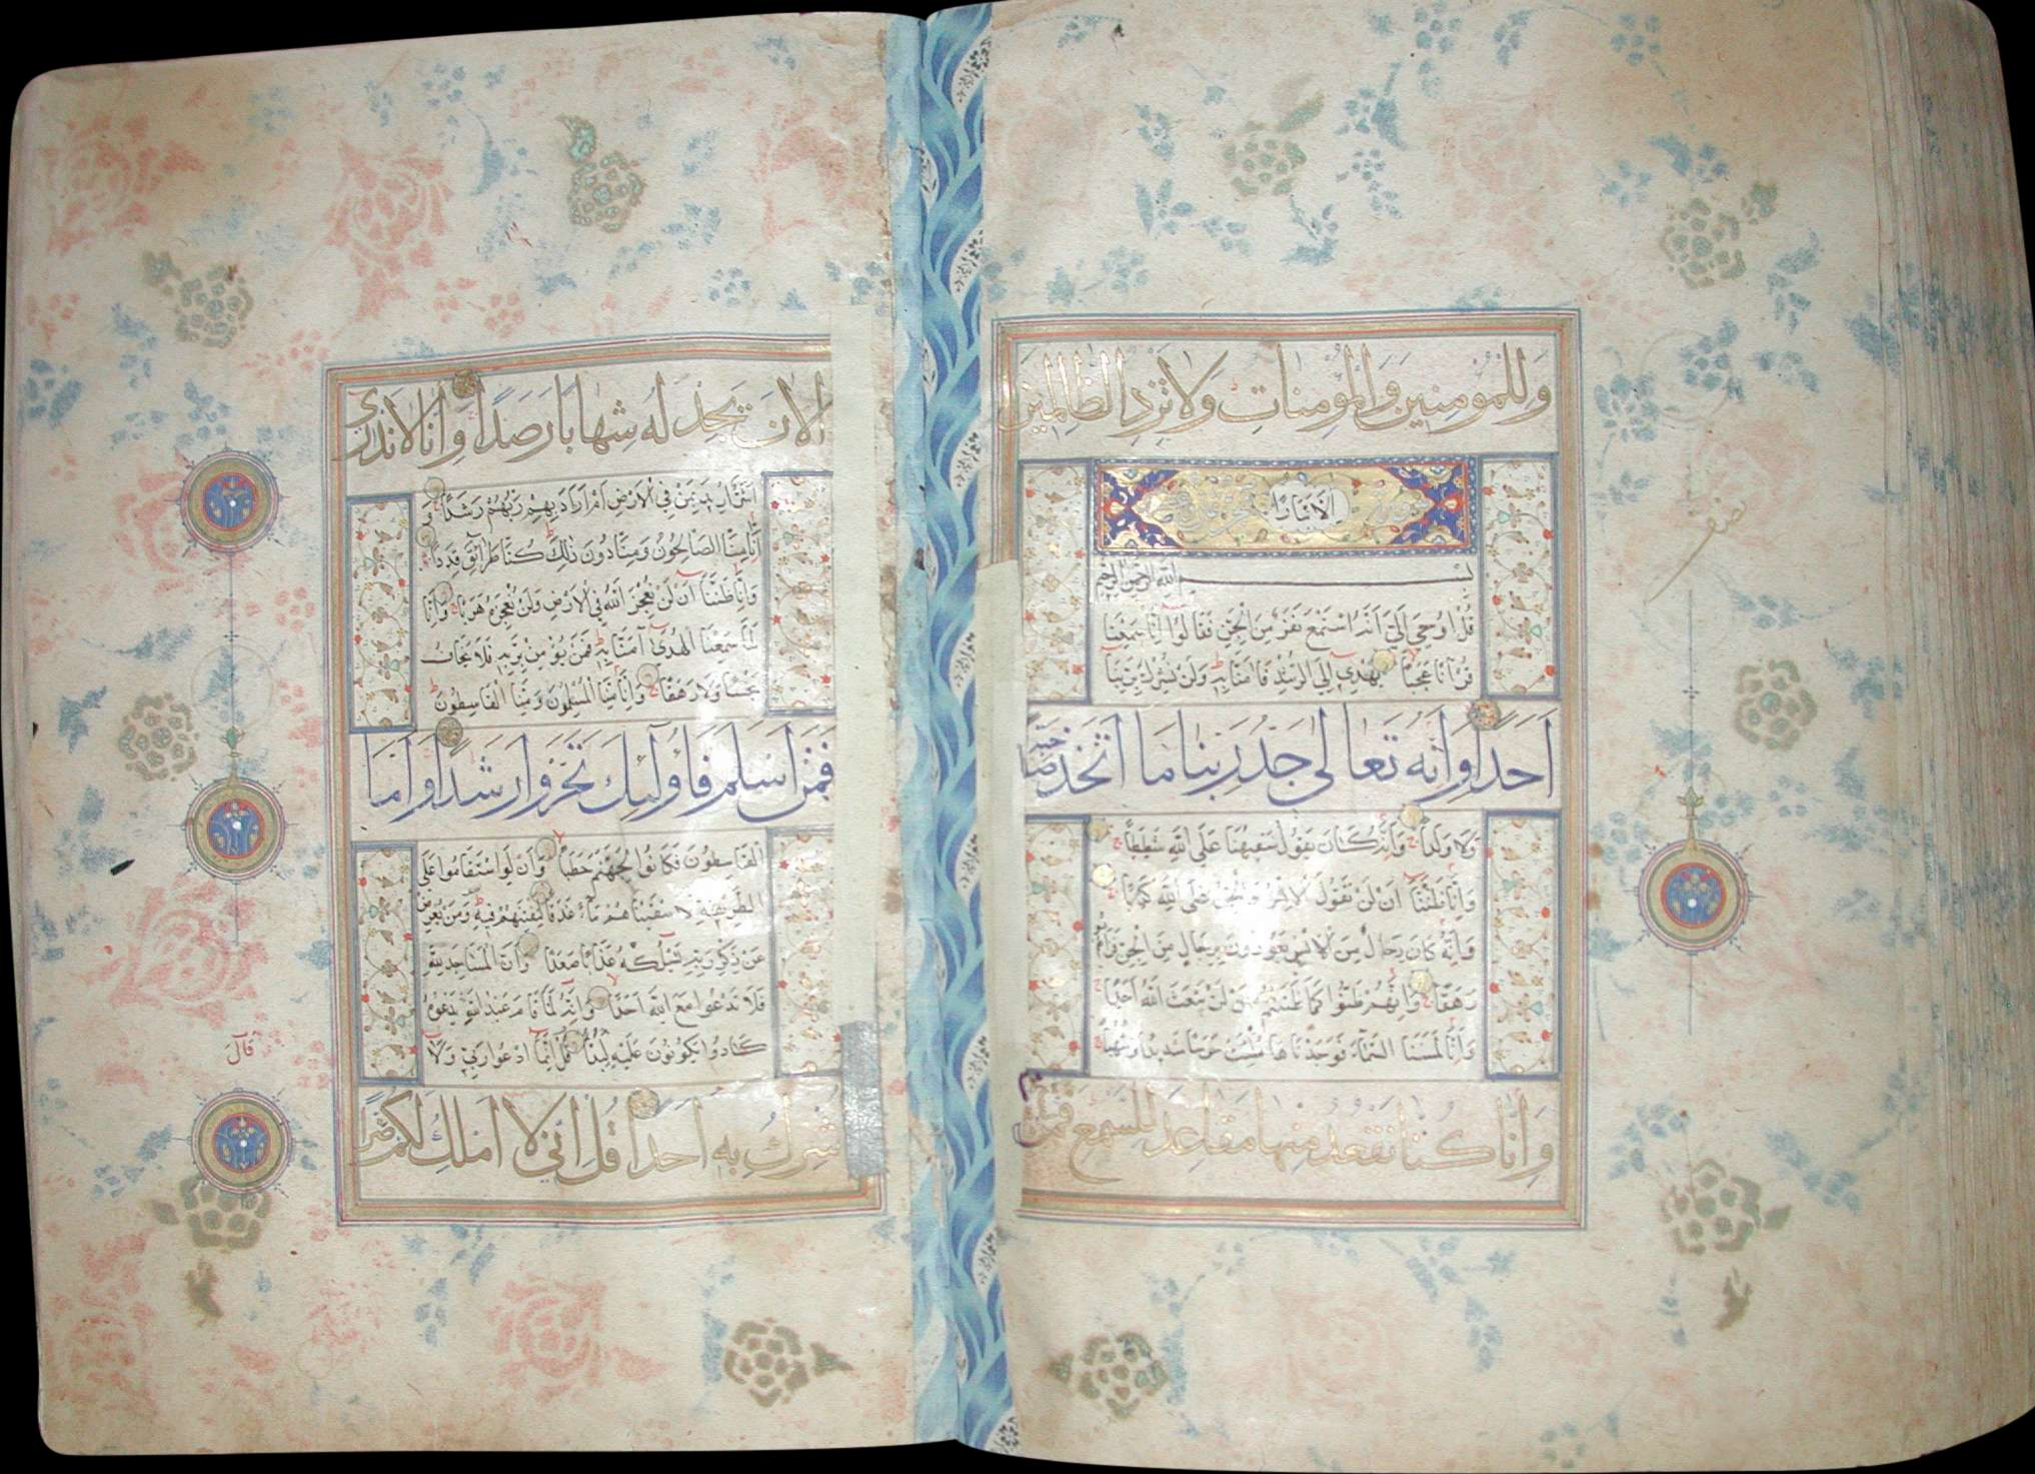 وَلِلْمُؤمِنِينَ وَالْمُؤمِنَاتِ وَلَا تَزِدِ الظَّالِمِينَ
إِلَّا تَبَارًا
بِسْمِ اللَّهِ الرَّحْمٰنِ الرَّحِيمِ
قُلْ أُوحِيَ إِلَيَّ أَنَّهُ اسْتَمَعَ نَفَرٌ مِنَ الْجِنِّ فَقَالُوا إِنَّا سَمِعْنَا
قُرْآنًا عَجَبًا يَهْدِي إِلَى الرُّشْدِ فَآمَنَّا بِهِ وَلَنْ نُشْرِكَ بِرَبِّنَا
أَحَدًا وَأَنَّهُ تَعَالَى جَدُّ رَبِّنَا مَا اتَّخَذَ صَاحِبَةً
وَلَا وَلَدًا وَأَنَّهُ كَانَ يَقُولُ سَفِيهُنَا عَلَى اللَّهِ شَطَطًا
وَأَنَّا ظَنَنَّا أَنْ لَنْ تَقُولَ الْإِنْسُ وَالْجِنُّ عَلَى اللَّهِ كَذِبًا
وَأَنَّهُ كَانَ رِجَالٌ مِنَ الْإِنْسِ يَعُوذُونَ بِرِجَالٍ مِنَ الْجِنِّ فَزَادُوهُمْ
رَهَقًا وَأَنَّهُمْ ظَنُّوا كَمَا ظَنَنْتُمْ أَنْ لَنْ يَبْعَثَ اللَّهُ أَحَدًا
وَأَنَّا لَمَسْنَا السَّمَاءَ فَوَجَدْنَاهَا مُلِئَتْ حَرَسًا شَدِيدًا وَشُهُبًا
وَأَنَّا كُنَّا نَقْعُدُ مِنْهَا مَقَاعِدَ لِلسَّمْعِ فَمَنْ
نصف
الْآنَ يَجِدْ لَهُ شِهَابًا رَصَدًا وَأَنَّا لَا نَدْرِي
أَشَرٌّ أُرِيدَ بِمَنْ فِي الْأَرْضِ أَمْ أَرَادَ بِهِمْ رَبُّهُمْ رَشَدًا وَ
أَنَّا مِنَّا الصَّالِحُونَ وَمِنَّا دُونَ ذَلِكَ كُنَّا طَرَائِقَ قِدَدًا
وَأَنَّا ظَنَنَّا أَنْ لَنْ نُعْجِزَ اللَّهَ فِي الْأَرْضِ وَلَنْ نُعْجِزَهُ هَرَبًا وَأَنَّا
لَمَّا سَمِعْنَا الْهُدَى آمَنَّا بِهِ فَمَنْ يُؤْمِنْ بِرَبِّهِ فَلَا يَخَافُ
بَخْسًا وَلَا رَهَقًا وَأَنَّا مِنَّا الْمُسْلِمُونَ وَمِنَّا الْقَاسِطُونَ
فَمَنْ أَسْلَمَ فَأُولَئِكَ تَحَرَّوْا رَشَدًا وَأَمَّا
الْقَاسِطُونَ فَكَانُوا لِجَهَنَّمَ حَطَبًا وَأَنْ لَوِ اسْتَقَامُوا عَلَى
الطَّرِيقَةِ لَأَسْقَيْنَاهُمْ مَاءً غَدَقًا لِنَفْتِنَهُمْ فِيهِ وَمَنْ يُعْرِضْ
عَنْ ذِكْرِ رَبِّهِ يَسْلُكْهُ عَذَابًا صَعَدًا وَأَنَّ الْمَسَاجِدَ لِلَّهِ
فَلَا تَدْعُوا مَعَ اللَّهِ أَحَدًا وَأَنَّهُ لَمَّا قَامَ عَبْدُ اللَّهِ يَدْعُوهُ
كَادُوا يَكُونُونَ عَلَيْهِ لِبَدًا قُلْ إِنَّمَا أَدْعُوا رَبِّي وَلَا
أُشْرِكُ بِهِ أَحَدًا قُلْ إِنِّي لَا أَمْلِكُ لَكُمْ ضَرًّا
قَالَ